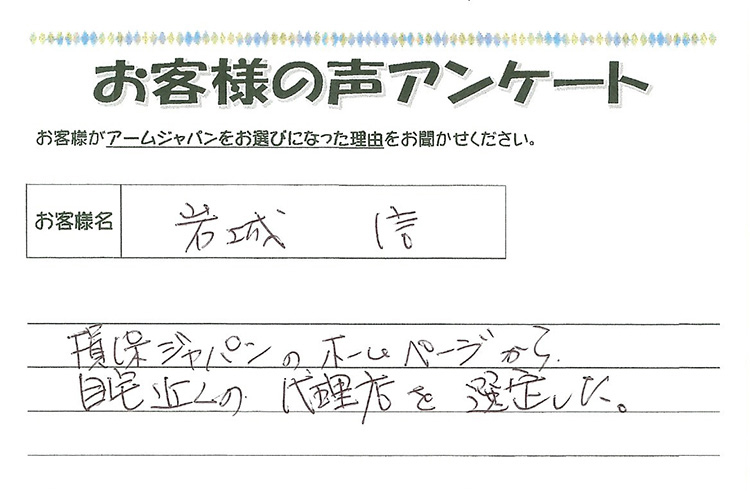 お客様の声アンケート
お客様がアームジャパンをお選びになった理由をお聞かせください。
お客様名 岩城 信
損保ジャパンのホームページから
自宅近くの代理店を選定した。